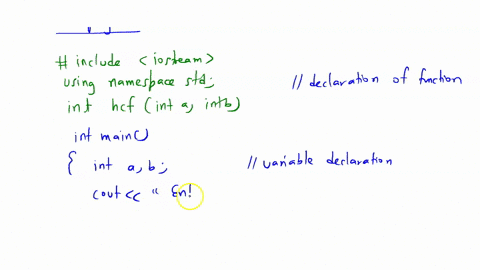 # include <iosteam>
using namespace std;
int hcf (int a, intb) // declaration of function
int main()
{ int a, b; // variable declaration
cout << " En!